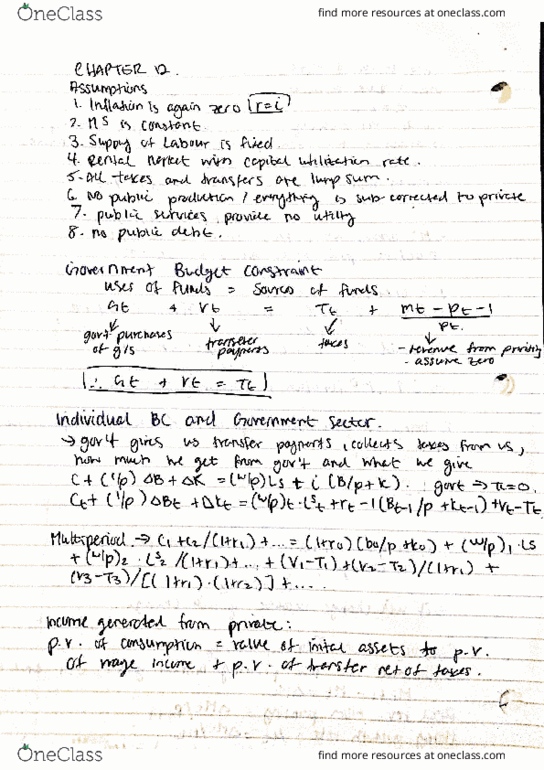 OneClass
find more resources at oneclass.com
CHAPTER 12.
Assumptions
1. Inflation is again zero r=i
2. MS is constant.
3. Supply of Labour is fixed.
4. Rental market with capital utilization rate.
5. All taxes and transfers are lump sum.
6. No public production / everything is sub-corrected to private
7. public services provide no utility
8. no public debt.
Government Budget constraint
uses of funds = Sources of funds.
Gt + Vt = Tt + Mt - Pt-1 / Pt.
gov't purchases of g/s
transfer payments
taxes
- revenue from printing
- assume zero
∴ Gt + Vt = Tt
Individual BC and Government Sector.
→ gov't gives us transfer payments, collects taxes from us,
how much we get from gov't and what we give
C + (1/p) ΔB + ΔK = (w/p)Ls + i (B/p + K). gov't ⇒ π=0.
Ct + (1/p) ΔBt + ΔKt = (w/p)t · Lst + rt-1 (Bt-1/p + Kt-1) + Vt - Tt
Multiperiod → C1 + C2/(1+r1) + ... = (1+r0)(B0/p + K0) + (w/p)1 · LS
+ (w/p)2 · LS2/(1+r1) + ... + (V1-T1) + (V2-T2)/(1+r1) +
(V3-T3)/[(1+r1) · (1+r2)] + ...
Income generated from private:
p.v. of consumption = value of inital assets to p.v.
of wage income + p.v. of transfer net of taxes.
OneClass
find more resources at oneclass.com